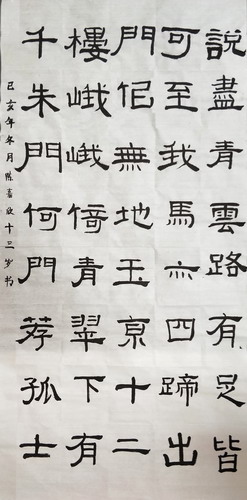 說盡青雲路有足皆
可至我馬亦四蹄出
門佀無地玉京十二
樓峨峨倚青翠下有
千朱門何門荐孤士
己亥年冬月陈嘉欣十三岁书